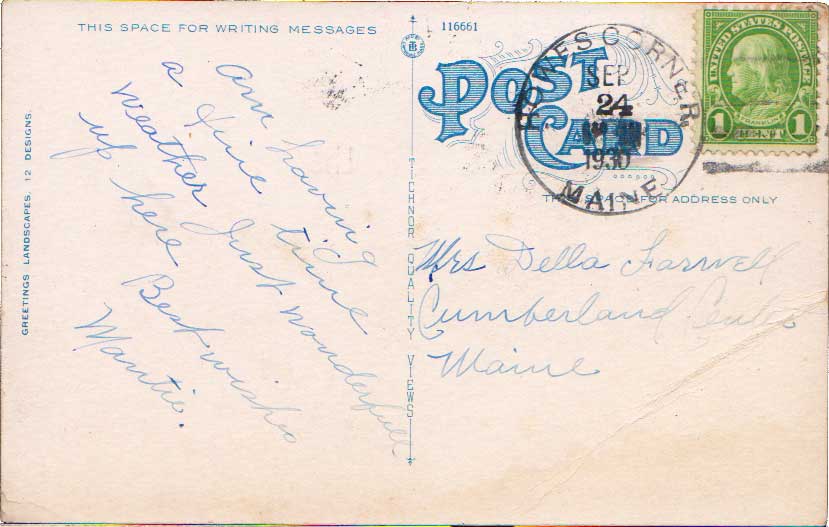 THIS SPACE FOR WRITING MESSAGES
116661
POST
CARD
HOWES CORNER
SEP
24
1930
MAINE
UNITED STATES POSTAGE
FRANKLIN
1 CENT 1
THIS SPACE FOR ADDRESS ONLY
GREETINGS LANDSCAPES, 12 DESIGNS.
TICHNOR QUALITY VIEWS
am having
a fine time
weather Just wonderfull
up here Best wishes
Mantie.
Mrs Della Farwell
Cumberland Centre
Maine